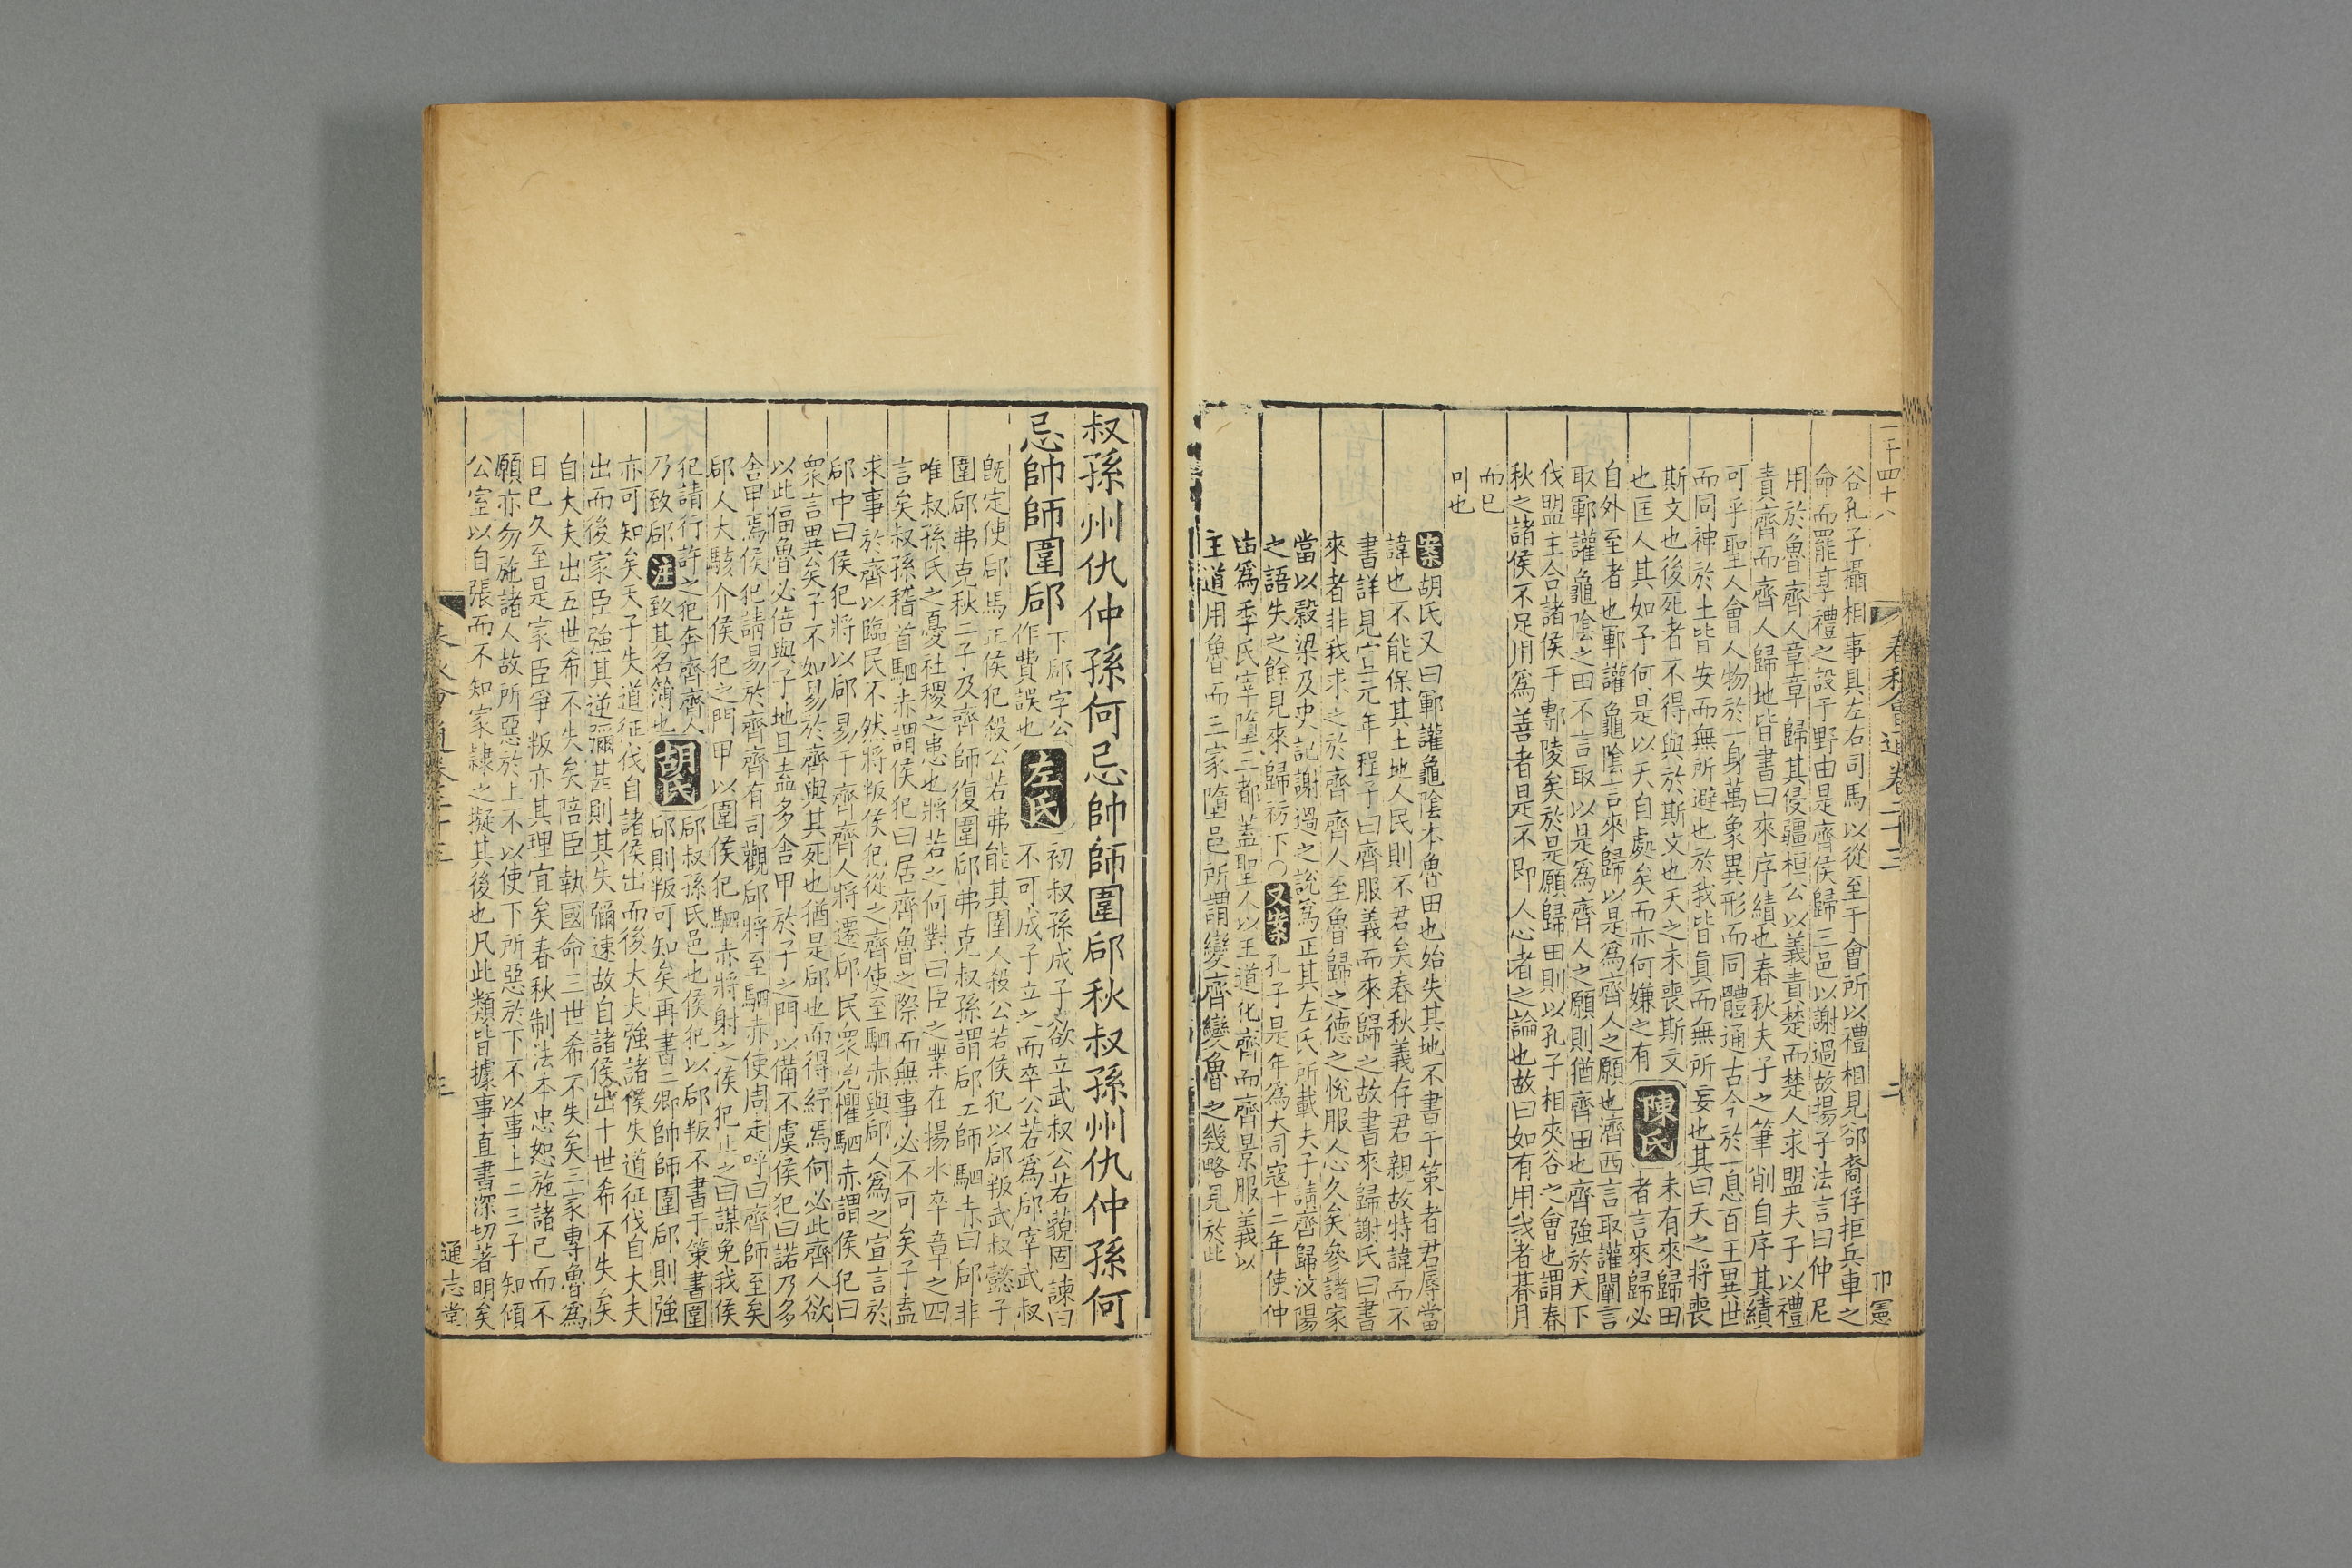 二千四十八
春秋會通卷二十三
二
卬憲
谷孔子攝相事具左右司馬以從至于會所以禮相見卻裔俘拒兵車之
命而罷享禮之設于野由是齊侯歸三邑以謝過故揚子法言曰仲尼
用於魯齊人章章歸其侵疆桓公以義責楚而楚人求盟夫子以禮
責齊而齊人歸地皆書曰來序績也春秋夫子之筆削自序其績
可乎聖人會人物於一身萬象異形而同體通古今於一息百王異世
而同神於土皆安而無所避也於我皆眞而無所妄也其曰天之將喪
斯文也後死者不得與於斯文也天之未喪斯文
也匡人其如予何是以天自處矣而亦何嫌之有
陳氏
未有來歸田
者言來歸必
自外至者也鄆讙龜陰言來歸以是爲齊人之願也濟西言取讙闡言
取鄆讙龜陰之田不言取以是爲齊人之願則猶齊田也齊強於天下
伐盟主合諸侯于鄟陵矣於是願歸田則以孔子相夾谷之會也謂春
秋之諸侯不足用爲善者是不即人心者之論也故曰如有用我者朞月
而已
可也
案胡氏又曰鄆讙龜陰本魯田也始失其地不書于策者君辱當
諱也不能保其土地人民則不君矣春秋義存君親故特諱而不
書詳見宣元年程子曰齊服義而來歸之故書來歸謝氏曰書
來者非我求之於齊齊人至魯歸之德之悅服人心久矣參諸家
當以穀梁及史記謝過之說爲正其左氏所載夫子請齊歸汶陽
之語失之餘見來歸祊下○又案孔子是年爲大司寇十二年使仲
由爲季氏宰墮三都蓋聖人以王道化齊而齊景服義以
主道用魯而三家墮邑所謂變齊變魯之幾略見於此
叔孫州仇仲孫何忌帥師圍郈秋叔孫州仇仲孫何
忌帥師圍郈
下郈字公
作費誤也
左氏
初叔孫成子欲立武叔公若藐固諫曰
不可成子立之而卒公若爲郈宰武叔
旣定使郈馬正侯犯殺公若弗能其圉人殺公若侯犯以郈叛武叔懿子
圍郈弗克秋二子及齊師復圍郈弗克叔孫謂郈工師駟赤曰郈非
唯叔孫氏之憂社稷之患也將若之何對曰臣之業在揚水卒章之四
言矣叔孫稽首駟赤謂侯犯曰居齊魯之際而無事必不可矣子盍
求事於齊以臨民不然將叛侯犯從之齊使至駟赤與郈人爲之宣言於
郈中曰侯犯將以郈易于齊齊人將遷郈民衆兇懼駟赤謂侯犯曰
衆言異矣子不如易於齊與其死也猶是郈也而得紓焉何必此齊人欲
以此偪魯必倍與子地且盍多舍甲於子之門以備不虞侯犯曰諾乃多
舍甲焉侯犯請易於齊齊有司觀郈將至駟赤使周走呼曰齊師至矣
郈人大駭介侯犯之門甲以圍侯犯駟赤將射之侯犯止之曰謀免我侯
犯請行許之犯奔齊齊人
乃致郈注致其名簿也
胡氏
郈叔孫氏邑也侯犯以郈叛不書于策書圍
郈則叛可知矣再書二卿帥師圍郈則強
亦可知矣天子失道征伐自諸侯出而後大夫強諸侯失道征伐自大夫
出而後家臣強其逆彌甚則其失彌速故自諸侯出十世希不失矣
自大夫出五世希不失矣陪臣執國命三世希不失矣三家專魯爲
日已久至是家臣爭叛亦其理宜矣春秋制法本忠恕施諸己而不
願亦勿施諸人故所惡於上不以使下所惡於下不以事上二三子知傾
公室以自張而不知家隷之擬其後也凡此類皆據事直書深切著明矣
三
通志堂